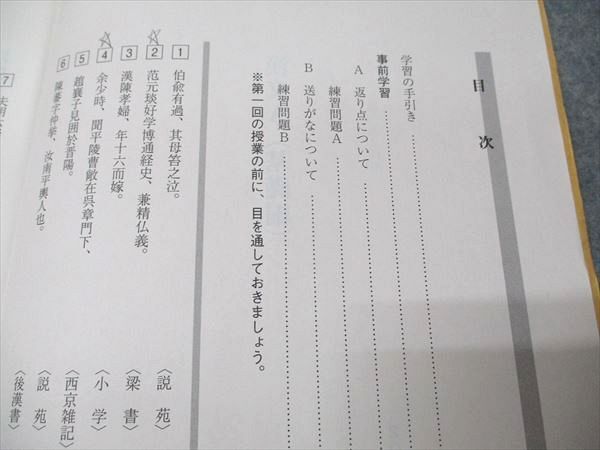 目次
学習の手引き
事前学習
A 返り点について
練習問題A
B 送りがなについて
練習問題B
※第一回の授業の前に、目を通しておきましょう。
1 伯兪有過、其母笞之泣。〈説苑〉
2 范元琰好学博通経史、兼精仏義。〈梁書〉
3 漢陳孝婦、年十六而嫁。〈小学〉
4 余少時、聞平陵曹敞在呉章門下、〈西京雑記〉
5 趙襄子見囲於晋陽。〈説苑〉
6 陳蕃字仲挙、汝南平輿人也。〈後漢書〉
7